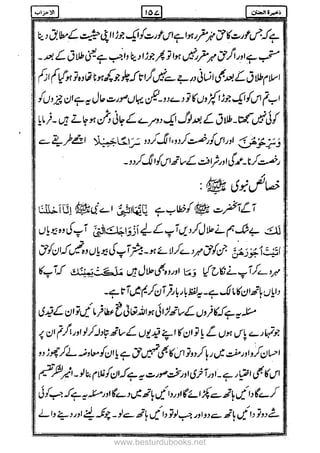 الاحزاب ۱۵۷ ذخیرۃ الجنان
ہے کہ جس عورت کا حق مہر مقرر ہوا ہے اس عورت کو ایک جوڑا اپنی حیثیت کے مطابق دینا
مستحب ہے اور اگر حق مہر مقرر نہیں ہوا تو پھر جوڑا دینا واجب ہے یعنی طلاق کے بعد۔
اسلام طلاق کے بعد بھی انسانی درجے سے نہیں گراتا کہ چلو جو ہونا تھا وہ تو ہو گیا کم از کم
اب تم اس کو ایک جوڑا کپڑوں کا دے دو۔ لیکن یہاں صورت حال یہ ہے ان چیزوں کو
کوئی نہیں سمجھتا۔ طلاق کے بعد لوگ ایک دوسرے کے جانی دشمن ہو جاتے ہیں۔ فرمایا
وَسَرِّحُوْهُنَّ اور اس کو رخصت کر دو، الگ کر دو سَرَاحًا جَمِيْلًا اچھے طریقے سے
رخصت کرنا۔ عمدگی اور شرافت کے ساتھ اس کو الگ کر دو۔
خصائص نبوی ﷺ :
آگے آنحضرت ﷺ کو خطاب ہے يٰٓاَيُّهَا النَّبِيُّ اے نبی ﷺ اِنَّآ اَحْلَلْنَا
لَكَ بے شک ہم نے حلال کر دیں آپ کے لیے اَزْوَاجَكَ الّٰتِيْٓ آپ کی وہ بیویاں
اٰتَيْتَ اُجُوْرَهُنَّ جن کو حق مہر دے کر لائے ہو۔ بیشتر آپ کی بیویاں وہ تھیں کہ ان کو حق
مہر دے کر آپ نے نکاح کیا وَمَا اور وہ بھی حلال ہیں مَلَكَتْ يَمِيْنُكَ کہ آپ کا
دایاں ہاتھ ان کا مالک ہے۔ یہ لفظ بار بار قرآن کریم میں آتا ہے۔
مسئلہ یہ ہے کہ کافروں کے ساتھ لڑائی ہو اللہ تعالیٰ فتح عطا فرمائیں تو ان کے قیدی
جو تمہارے پاس ہوں گے یا تو ان کا اپنے قیدیوں کے ساتھ تبادلہ کر لو اور اگر تم ان پر
احسان کرو اور مفت میں رہا کر دو تو اس کا بھی حق تمہیں ہے یا ان کو معاوضہ لے کر چھوڑ دو
اس کا بھی اختیار ہے۔ اور آخری اور سخت صورت یہ ہے کہ ان کو غلام بنا لو۔ امیر لشکر تقسیم
کرے گا دائیں ہاتھ سے پکڑائے گا اور دائیں ہاتھ میں دے گا اور مسئلہ یہ ہے کہ جب کوئی
شے دو تو دائیں ہاتھ سے دو اور جب لو تو دائیں ہاتھ سے لو۔ چونکہ لینے اور دینے والے
www.besturdubooks.net